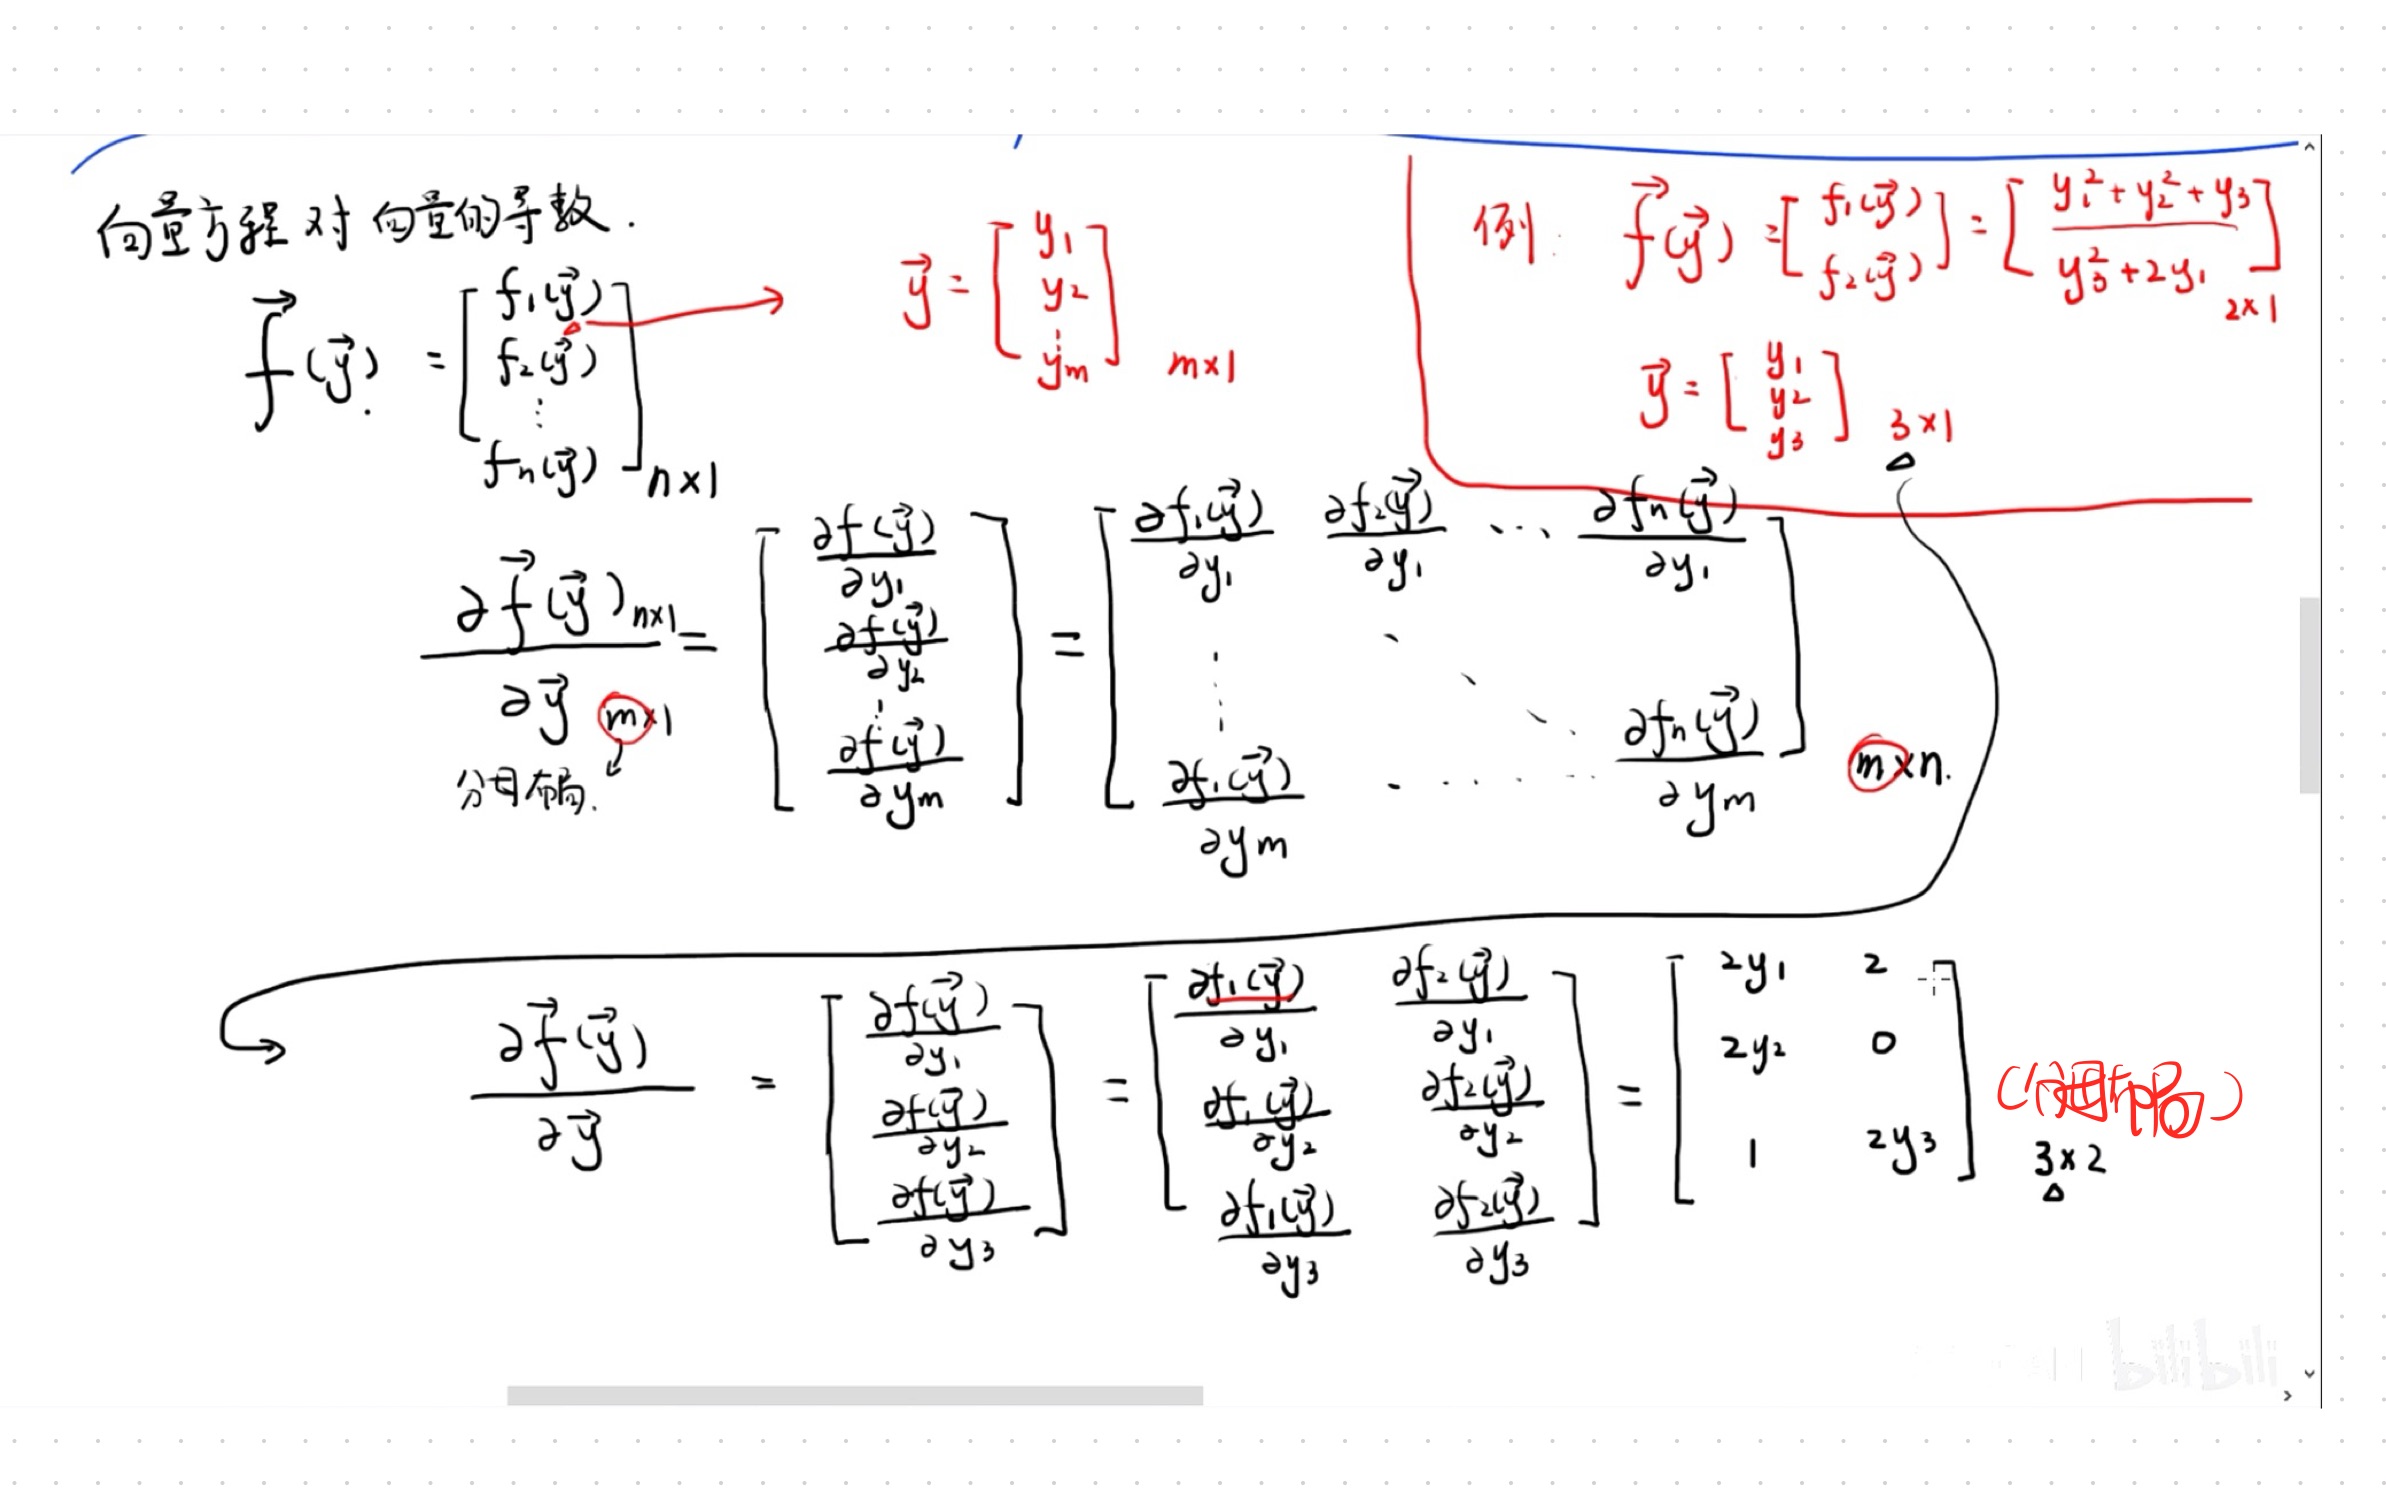 向量方程对向量的导数.
f⃗(y⃗) = [ f₁(y⃗) f₂(y⃗) ⋮ fₙ(y⃗) ] n×1
y⃗ = [ y₁ y₂ ⋮ yₘ ] m×1
例: f⃗(y⃗) = [ f₁(y⃗) f₂(y⃗) ] = [ y₁²+y₂²+y₃ y₃²+2y₁ ] 2×1
y⃗ = [ y₁ y₂ y₃ ] 3×1
∂f⃗(y⃗)n×1 / ∂y⃗ m×1 = [ ∂f(y⃗)/∂y₁ ∂f(y⃗)/∂y₂ ⋮ ∂f(y⃗)/∂yₘ ] = [ ∂f₁(y⃗)/∂y₁ ∂f₂(y⃗)/∂y₁ ⋯ ∂fₙ(y⃗)/∂y₁ ⋮ ⋱ ∂f₁(y⃗)/∂yₘ ⋯ ∂fₙ(y⃗)/∂yₘ ] m×n.
分母布局.
∂f⃗(y⃗)/∂y⃗ = [ ∂f(y⃗)/∂y₁ ∂f(y⃗)/∂y₂ ∂f(y⃗)/∂y₃ ] = [ ∂f₁(y⃗)/∂y₁ ∂f₂(y⃗)/∂y₁ ∂f₁(y⃗)/∂y₂ ∂f₂(y⃗)/∂y₂ ∂f₁(y⃗)/∂y₃ ∂f₂(y⃗)/∂y₃ ] = [ 2y₁ 2 2y₂ 0 1 2y₃ ] 3×2
bilibili